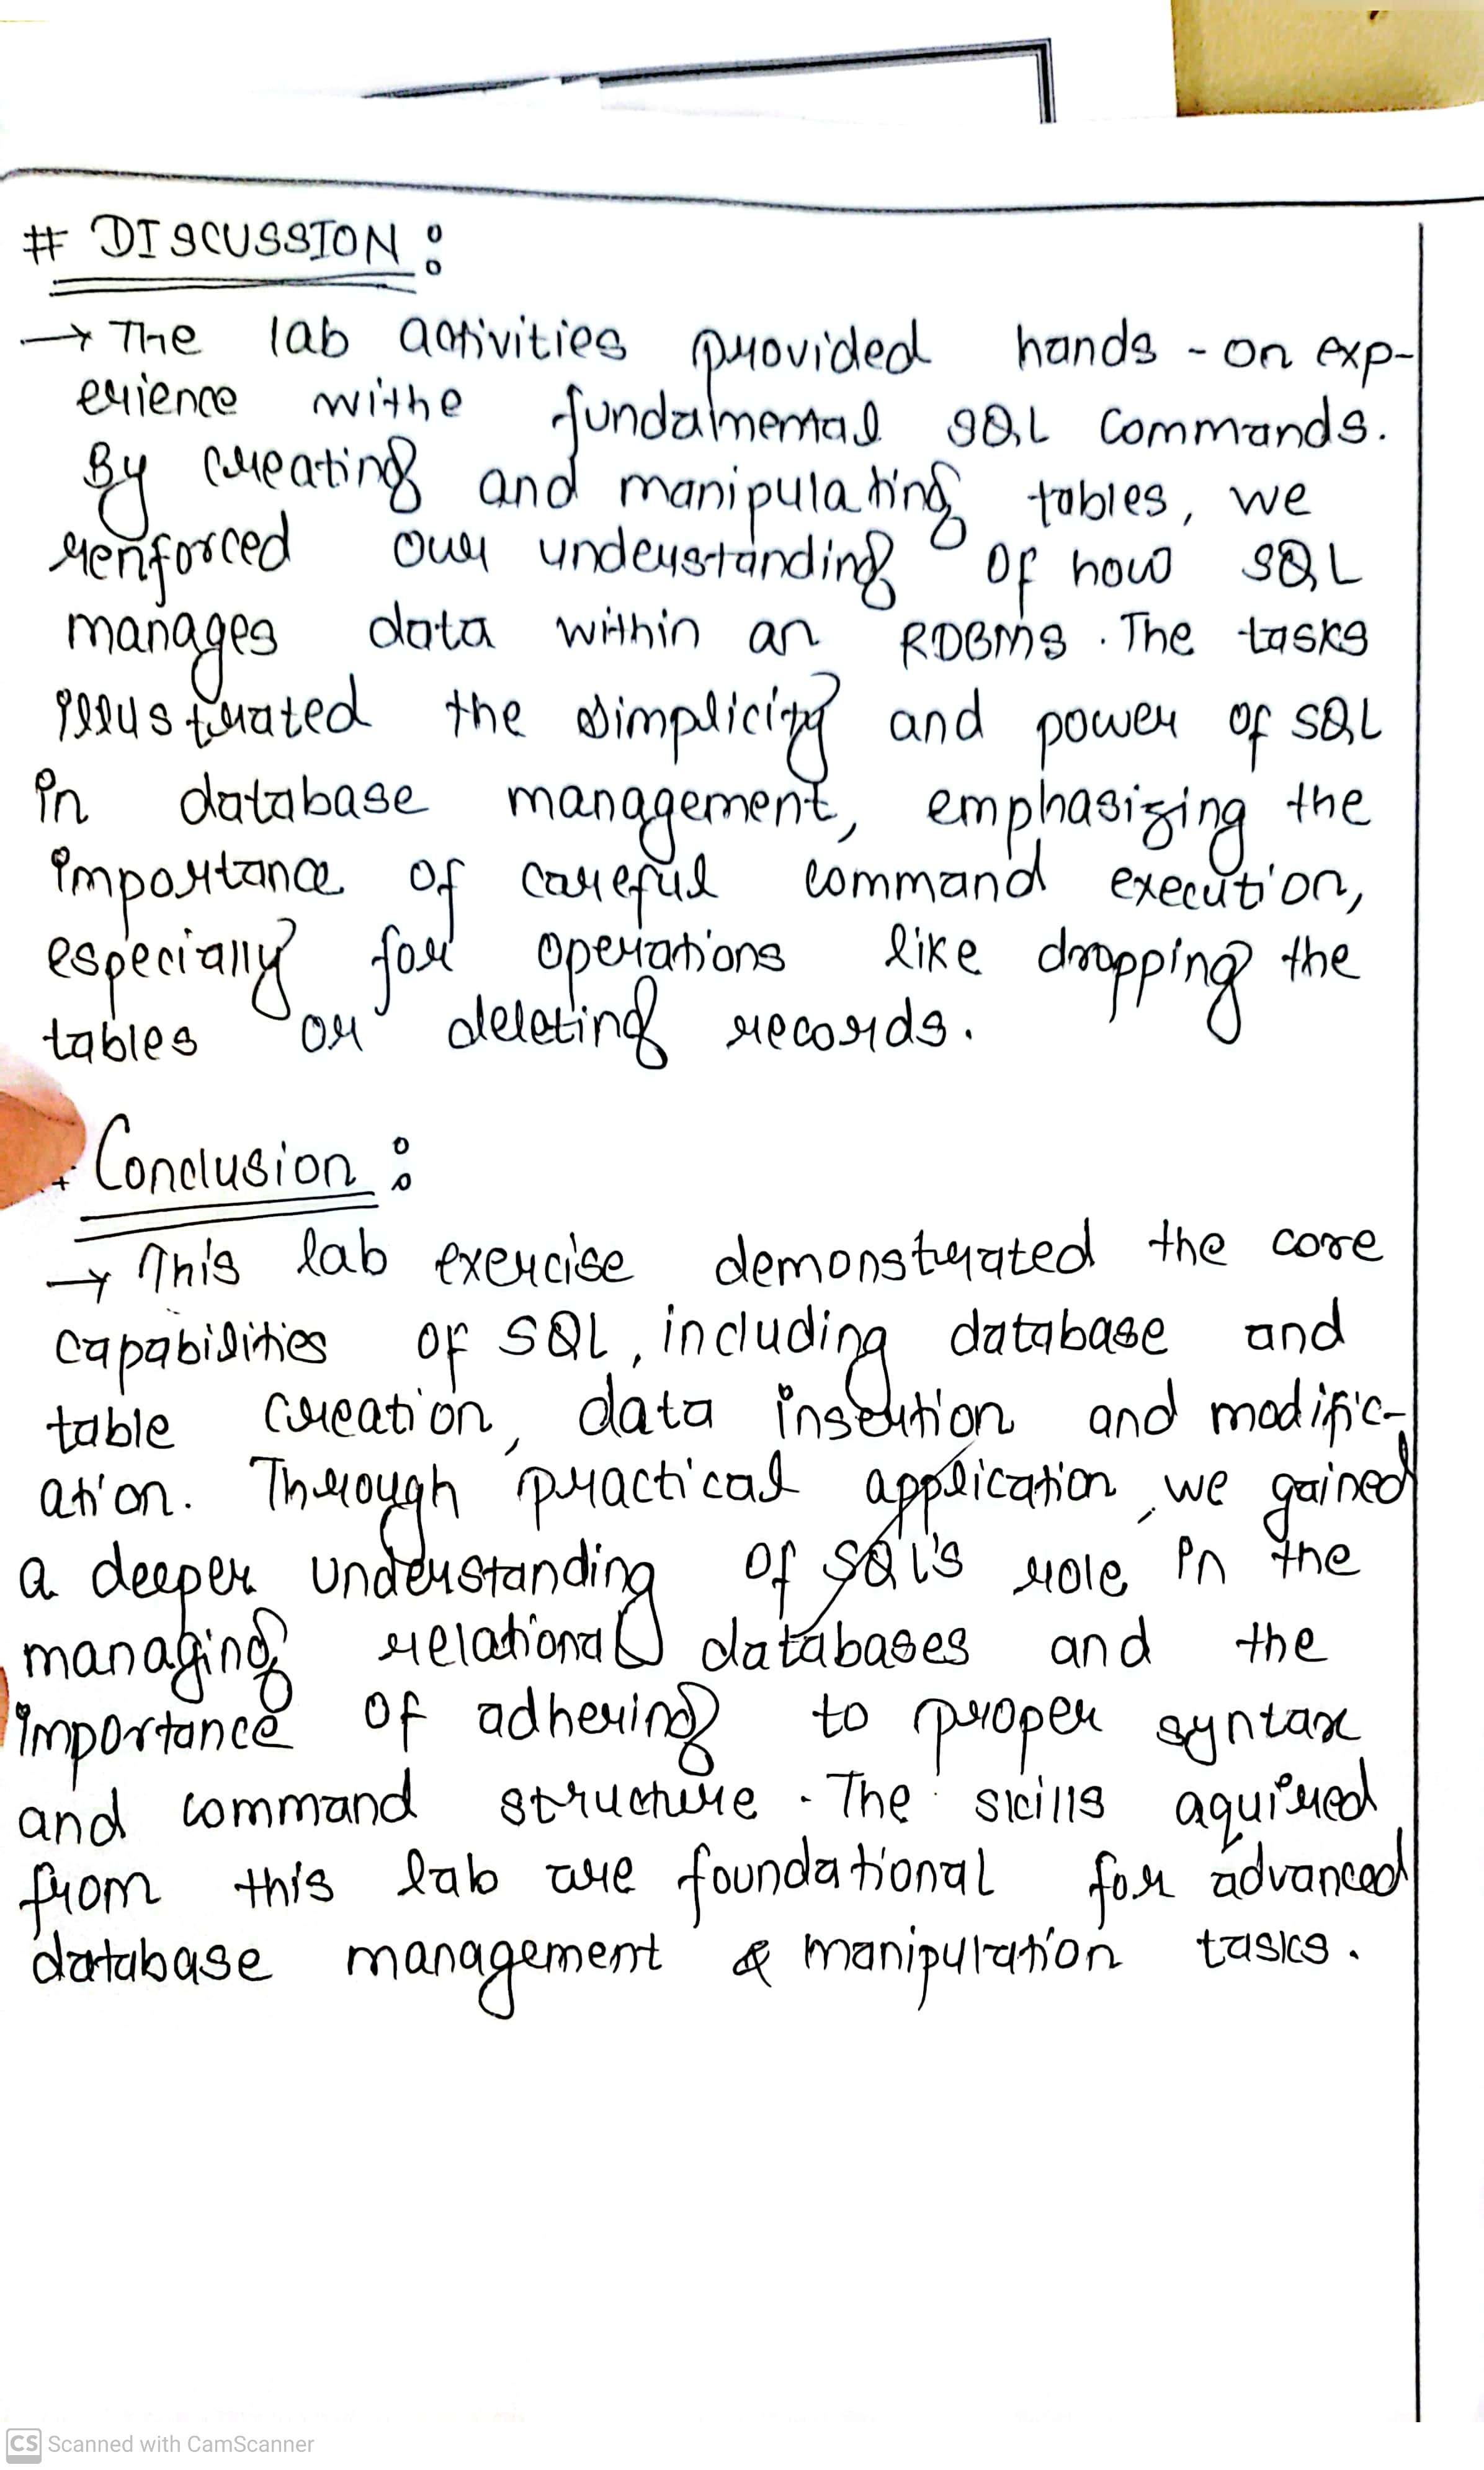 # DISCUSSION :
→ The lab activities provided hands-on exp-
erience withe fundamental SQL commands.
By creating and manipulating tables, we
renforced our understanding of how SQL
manages data within an RDBMS. The tasks
illustrated the simplicity and power of SQL
in database management, emphasizing the
importance of careful command execution,
especially for operations like dropping the
tables or deleting records.
Conclusion :
→ This lab exercise demonstrated the core
capabilities of SQL, including database and
table creation, data insertion and modific-
ation. Through practical application, we gained
a deeper understanding of SQL's role in the
managing relational databases and the
importance of adhering to proper syntax
and command structure. The skills aquired
from this lab are foundational for advanced
database management & manipulation tasks.
CS Scanned with CamScanner